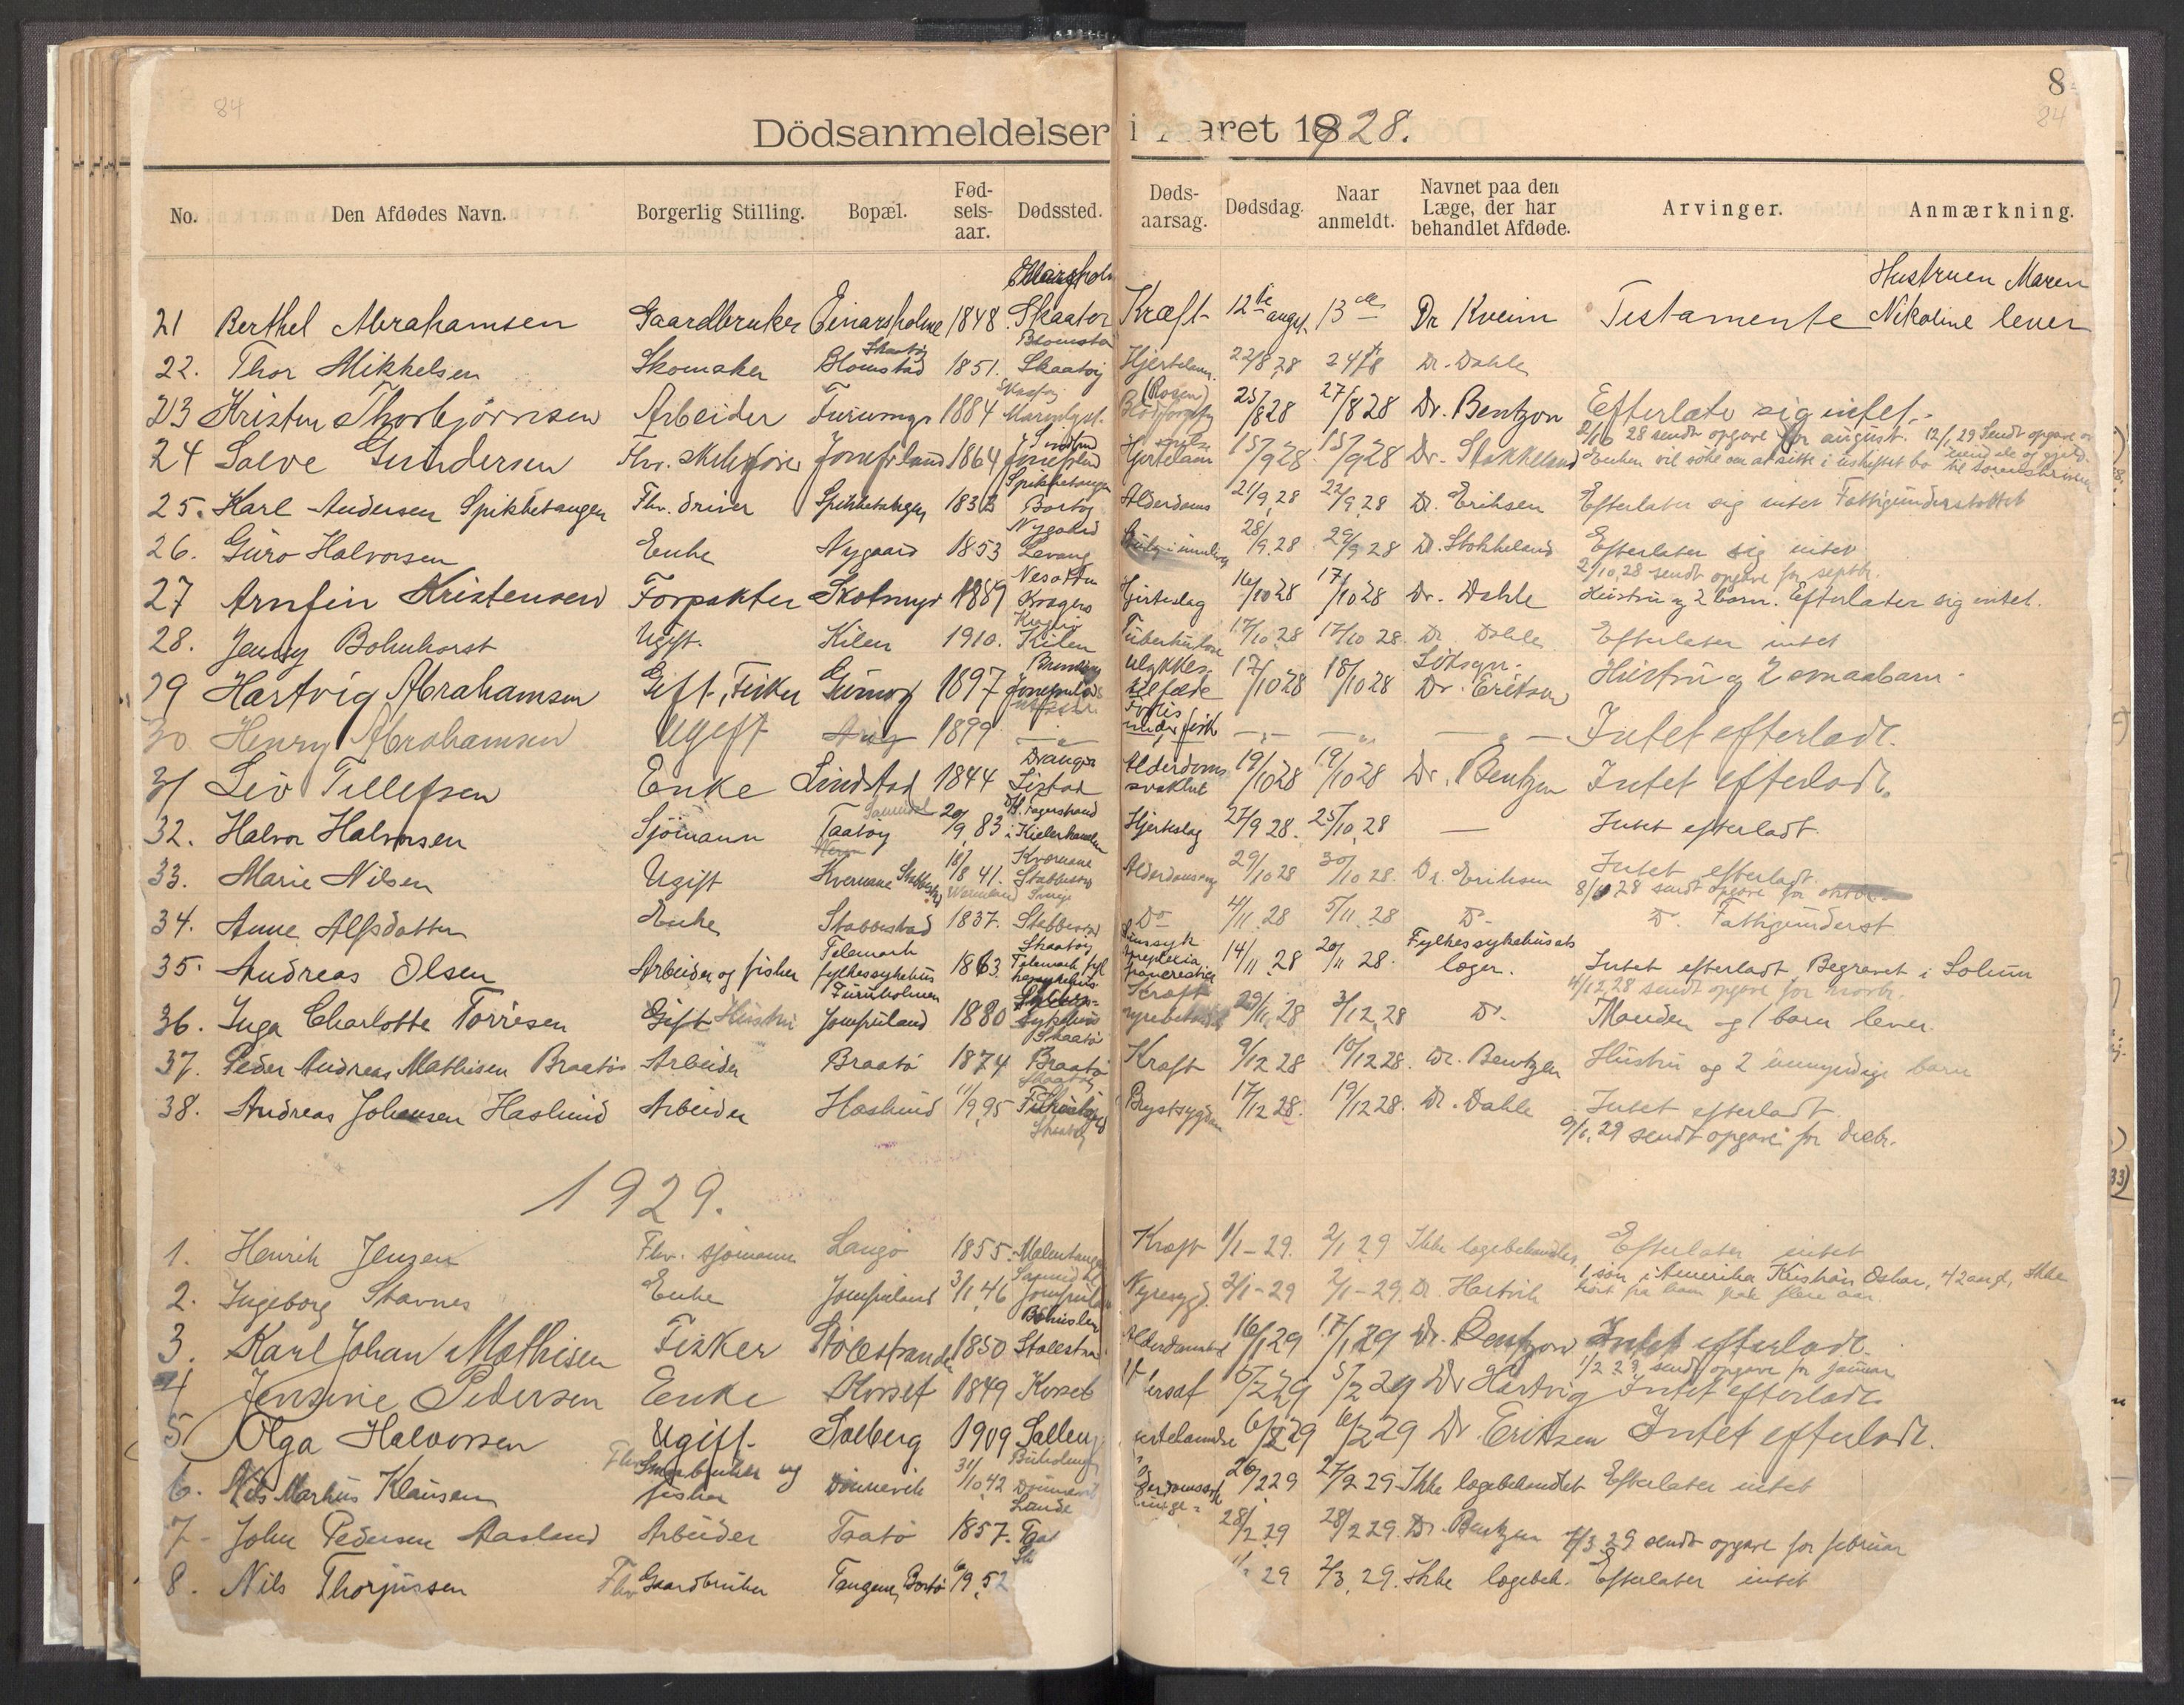 84
8
84
Dödsanmeldelser i aaret 1928.
No. Den Afdødes Navn. Borgerlig Stilling. Bopæl. Fød-sels-aar. Dødssted. Døds-aarsag. Dødsdag. Naar anmeldt. Navnet paa den Læge, der har behandlet Afdøde. Arvinger. Anmærkning.
21 Berthel Abrahamsen Gaardbruker Einarsholme 1848 Skaatø Kræft 12te august 13de Dr Kveim Testamente Hustruen Maren Nikoline lever
22. Thor Mikkelsen Skomaker Blomstad Skaatø 1851. Blomstad Skaatøy 22/8 28 24/8 Dr. Dahle
23 Kristen Thorbjörnsen Arbeider Furumyr 1884 Skaatøy 25/8 28 27/8 28 Dr. Bentzon Efterlate sig intet.
2/10 28 sendt opgave for august. 12/1 29 Sendt opgave
24 Salve Gundersen Fhv. Jomfruland 1864 Jomfruland 15/9 28 15/9 28 Dr. Stokkeland Enken vil söke om at sitte i uskiftet bo
25. Karl Andersen Spikketangen Fhv. driver Spikketangen Alderdoms 21/9 28 22/9 28 Dr. Eriksen Efterlater sig intet Fattigunderstøttet
26. Guro Halvorsen Enke Nygaard 1853 Nygaard Levang 28/9 28 29/9 28 Dr. Stokkeland Efterlater sig intet
2/10 28 sendt opgave for septbr.
27 Arnfin Kristensen Forpakter Skotmyr 1889 Kragerø Hjerteslag 16/10 28 17/10 28 Dr. Dahle Hustru og 2 barn. Efterlater sig intet.
28. Jenny Bohnhorst Ugift. Kilen 1910. Kragerø Kilen Tuberkulose 17/10 28 17/10 28 Dr. Dahle Efterlater intet
29 Hartvig Abrahamsen Gift, Fisker Gumøy 1897 Jomfruland Ulykkestilfælde 17/10 28 18/10 28 Dr. Eriksen Hustru og 2 smaabarn.
30 Henry Abrahamsen Ugift 1899 — „ — Forlis under fiske — „ — — „ — — „ — Intet efterladt.
31 Liv Tellefsen Enke Lindstad 1844 Alderdoms svakhet 19/10 28 19/10 28 Dr. Bentzen Intet efterladt.
32. Halvor Halvorsen Sjömann Taatøy 20/9 83 i Kielerkanalen Hjerteslag 27/9 28. 25/10 28 — Intet efterladt.
33. Marie Nilsen Ugift Kvernane Stabbestad 18/8 41. Kvernane Stabbestad 29/10 28 30/10 28. Dr. Eriksen Intet efterladt.
34. Anne Alfsdatter Enke Stabbestad 1837. Do 4/11 28 5/11 28 Do Do Fattigunderst.
35. Andreas Olsen Arbeider og fisher Telemark fylkessykehus 1863. 14/11 28 20/11 28. Fylkessykehusets læger. Intet efterladt. Begravet i Solum
4/12 28 sendt opgave for novbr.
36. Inga Charlotte Torrisen Gift Hustru Furuholmen Jomfruland 1880 Kræft 29/11 28 3/12 28 Do Manden og 1 barn lever.
37. Peder Andreas Mathisen Braatø Arbeider Braatø 1874 Braatø Skaatøy Kræft 9/12 28 10/12 28. Dr. Bentzen Hustru og 2 umyndige barn
38. Andreas Johansen Haslund Arbeider Haslund 11/9 95 Skaatøy Brystsygdom 17/12 28. 19/12 28. Dr. Dahle Intet efterladt
9/1 29 sendt opgave for decbr.
1929.
1. Henrik Jenzen Fhv. sjømann Langø 1855. Kræft 1/1-29. 2/1 29 Ikke lægebehandlet. Efterlater intet
2. Ingeborg Stavnes Enke Jomfruland 3/1 46 Jomfruland Nyresygd. 2/1-29 2/1-29. Dr. Hartvik 1 søn i Amerika Kristian Oskar, 42 aar, ikke hört fra ham paa flere aar.
3. Karl Johan Mathisen Fisker Stölestrand 1850 16/1 29 17/1 29 Dr. Bentzon Intet efterladt.
1/2 29 sendt opgave for januar
4 Jensine Pedersen Enke Kosset 1849 Kosset 5/2 29 Dr Hartvig Intet efterladt.
5 Olga Halvorsen Ugift Solberg 1909 6/2 29 6/2 29 Dr. Eriksen Intet efterladt.
6. Nils Markus Klausen Fhv Smaabruker og fisher Dönnevik 31/10 42 Dönnevik 26/2 29 27/2 29 Ikke lægebehandlet Efterlater intet
7 - John Pedersen Aasland Arbeider Taatø 1857. 28/2 29 28/2 29. Dr. Bentzen 7/3 29 sendt opgave for februar
8. Nils Thorjussen Fhv Gaardbruker Tangen, Bortø 6/9 52 29 2/3 29. Ikke lægebeh. Efterlater intet